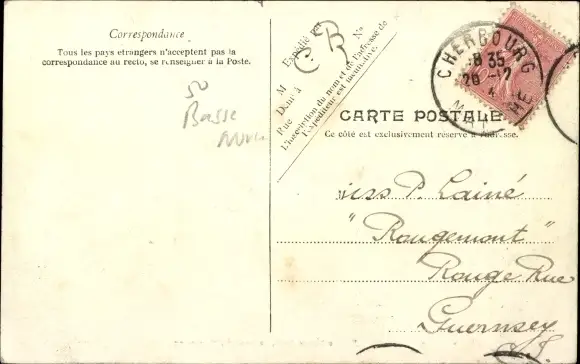 Correspondance
Tous les pays étrangers n'acceptent pas la
correspondance au recto, se renseigner à la Poste.
50
Basse
Expédié par
M
Demt à
Rue
No
L'inscription du nom et de l'adresse de
l'expéditeur est facultative.
CB
CHERBOURG
8 35
26 -12
MANCHE
CARTE POSTALE
Ce côté est exclusivement réservé à l'adresse.
Miss P. Lainé
"Rougemont"
Rouge Rue
Guernsey